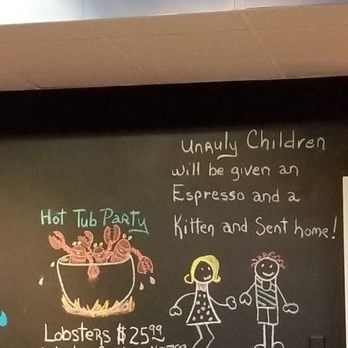 Unruly Children
will be given an
Espresso and a
Kitten and Sent home!
Hot Tub Party
Lobsters $25.99